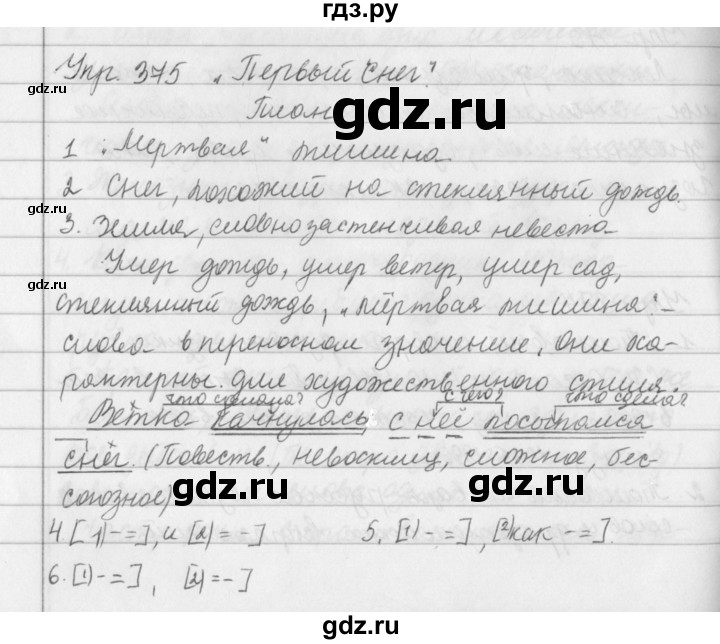 гдз.ру
Упр. 375 „Первый снег."
План
1 „Мертвая" тишина
2 Снег, похожий на стеклянный дождь.
3. Земля, словно застенчивая невеста
Умер дождь, умер ветер, умер сад,
стеклянный дождь, „мёртвая тишина" -
слова в переносном значение. Они ха-
рактерны для художественного стиля.
что сделала? с чего? что сделал?
Ветка качнулась, с неё посыпался
снег. (Повеств., невосклиц, сложное, бес-
союзное)
4. [1) - =], и [2) = -] 5. [1) - =], [2) как - =].
6. [1) - =], [2) = -]
gdz.ru
gdz.ru
gdz.ru
gdz.ru
gdz.ru
gdz.ru
gdz.ru
gdz.ru
gdz.ru
gdz.ru
gdz.ru
гдз.ру